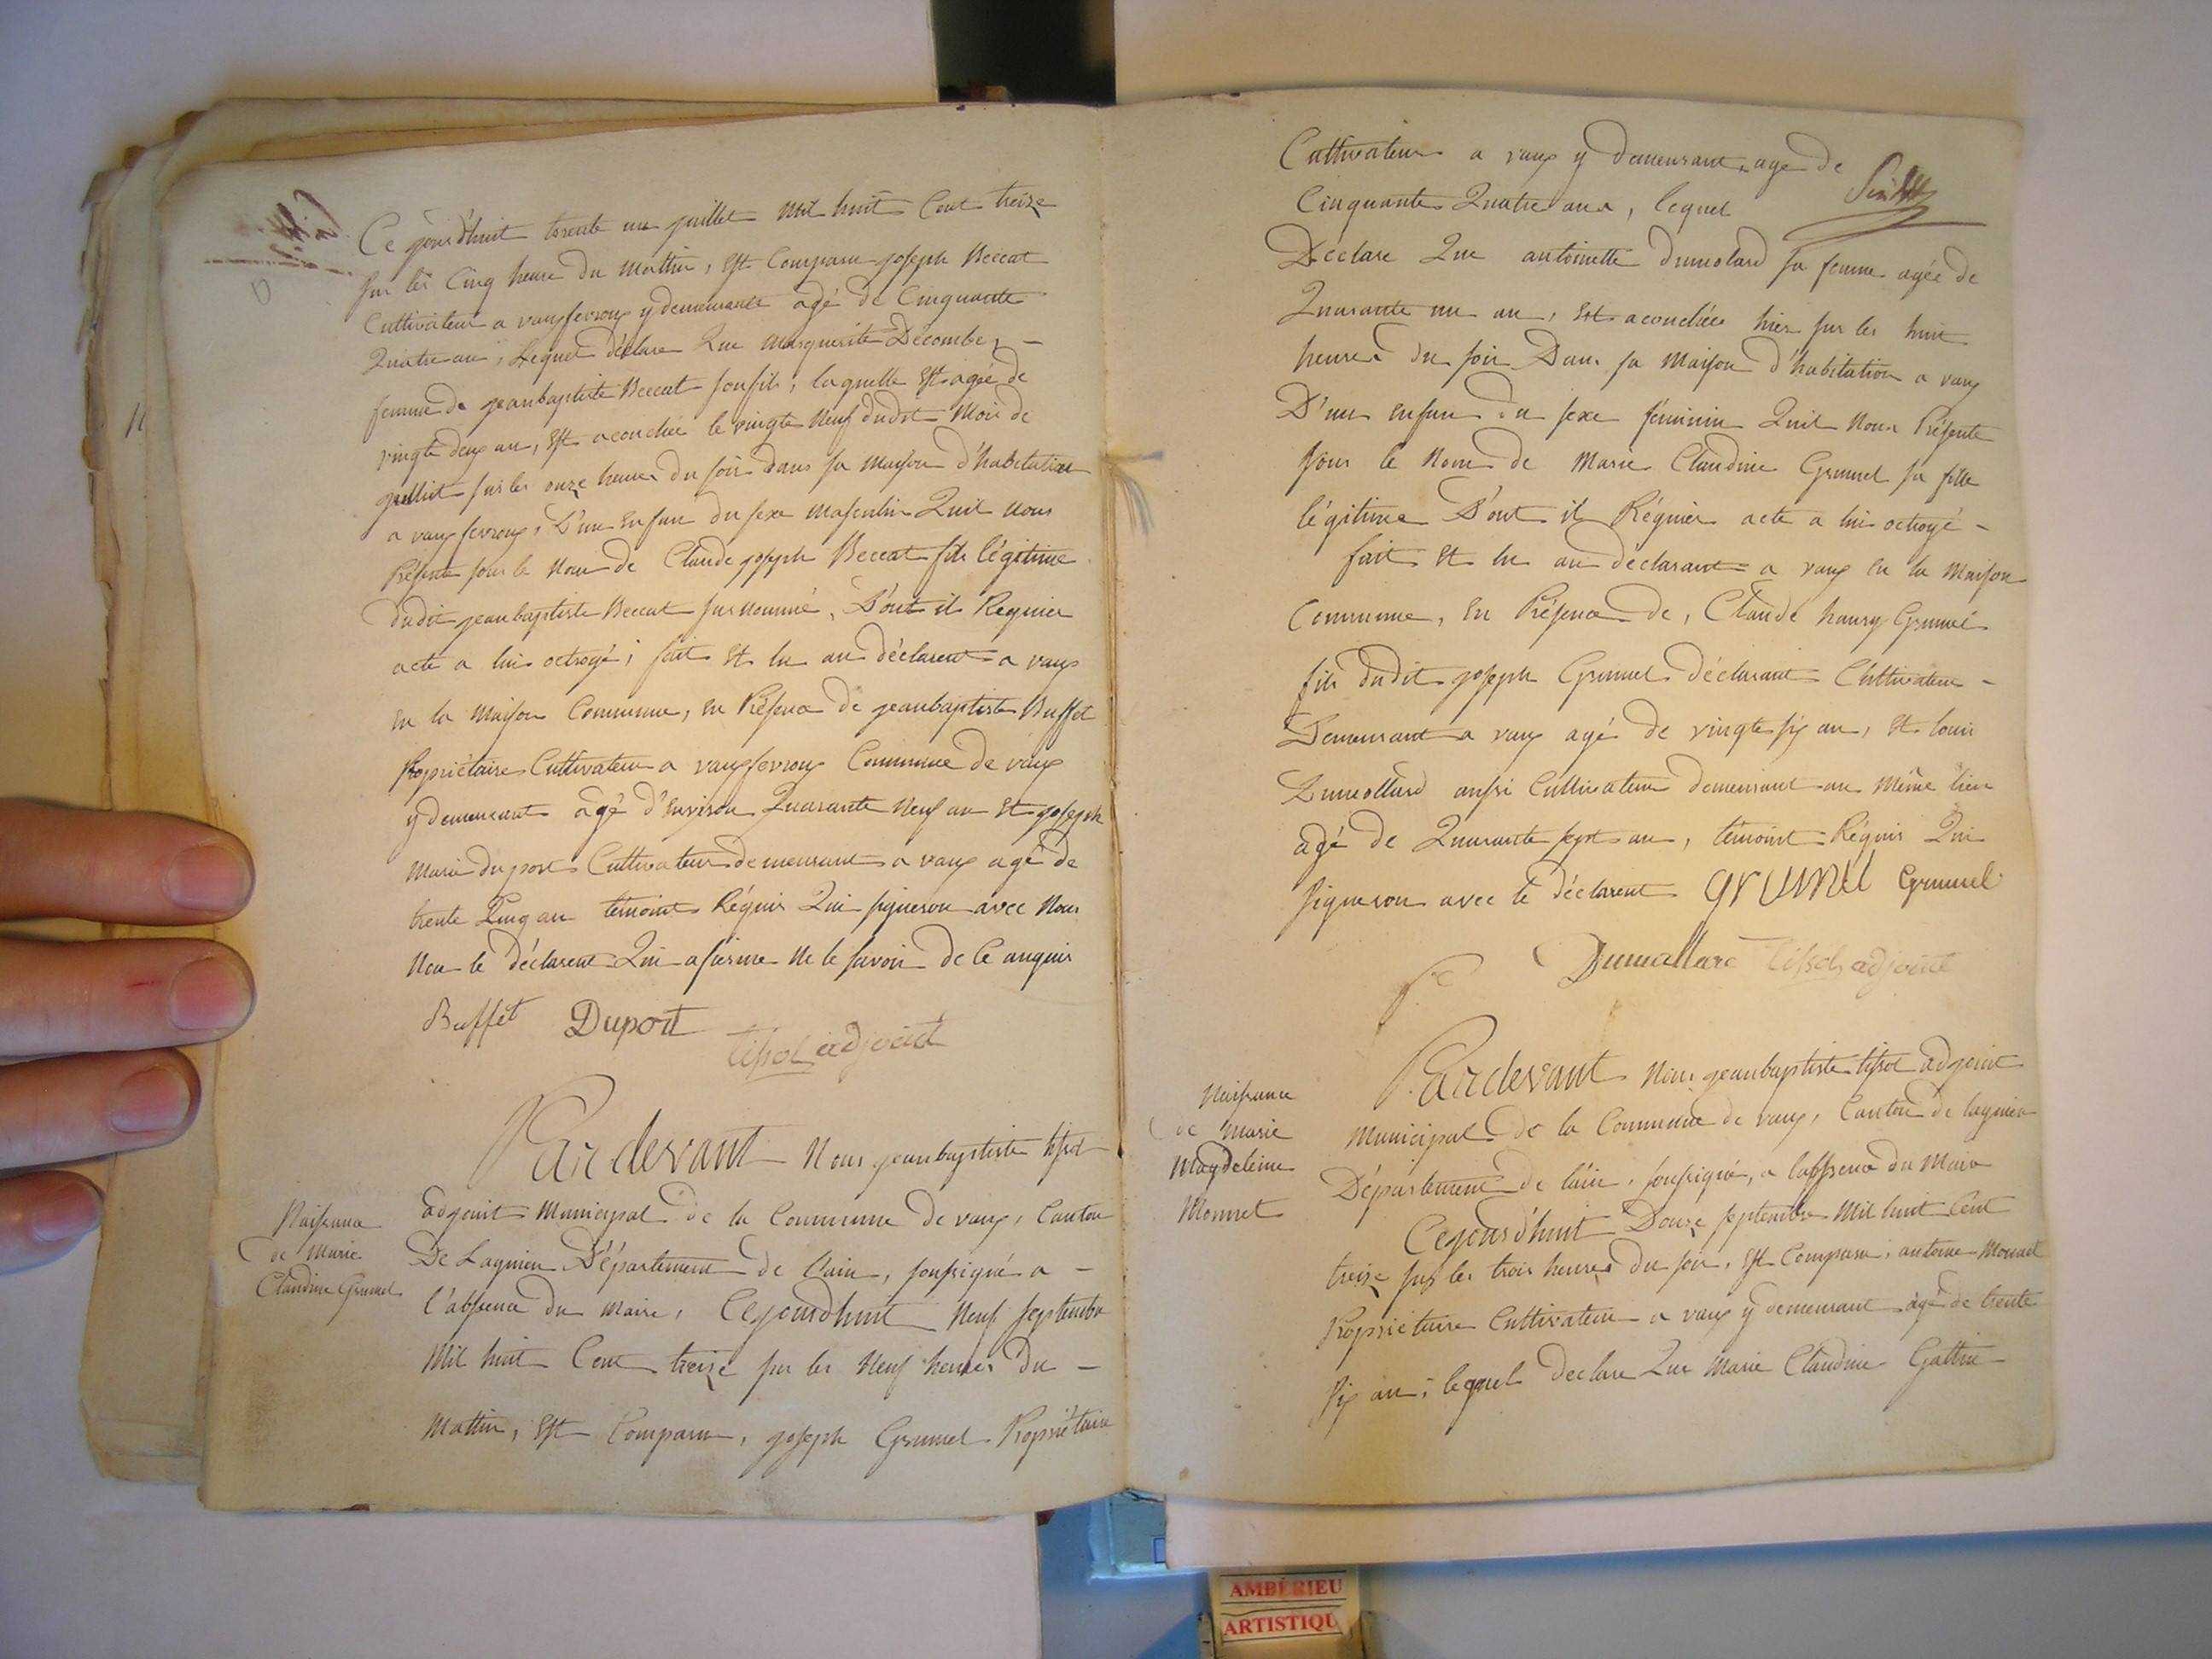 Ce jourd'huit trente un juillet mil huit Cent treize
sur les Cinq heure du mattin, Est Comparu joseph Beccat
Cultivateur a vauxfevroux y demeurant agé de Cinquante
Quatre an, Lequel déclare Que marguerite Décombe
femme de jeanbaptiste Beccat son fils, laquelle Est agée de
vingte deux an, Est acouchée le vingte Neuf dudit Mois de
juillit sur les onze heures du soir dans sa maison d'habitation
a vauxfevroux, D'un Enfan du sexe masculin Quil nous
Présente sous le nom de Claude joseph Beccat fils légitime
dudit jeanbaptiste Beccat surnommé, D'ont il Requier
acte a lui octroyé, fait Et lu au déclarent a vaux
En la Maison Commune, En Présence de jeanbaptiste Buffet
Propriétaire Cultivateur a vauxfevroux Commune de vaux
y demeurant agé d'Environ Quarante Neuf an Et joseph
Marie duport Cultivateur demeurant a vaux agé de
trente Cinq an témoint Réquis Qui signeron avec Nous
Non le déclarent Qui afirme Ne le savoir de Ce anquis
Buffet Duport
tissot adjoint
Pardevant Nous jeanbaptiste tissot
Naissance
de Marie
Claudine Grumel
adjoint Municipal de la Commune de vaux, Canton
De Lagnieu Département de l'ain, soussigné a
l'abssence du maire, Cejourdhuit Neuf septembre
Mil huit Cent treize sur les Neuf heures du
Mattin, Est Comparu, joseph Grumel Propriétaire
Cultivateur a vaux y demeurant, agé de
Cinquante Quatre ans, lequel
Déclare Que antoinette dumolard sa femme agée de
Quarante un an, Est acouchée hier sur les huit
heures du soir Dans sa Maison d'habitation a vaux
D'un Enfan du sexe féminin Quil Nous Présente
sous le Nom de Marie Claudine Grumel sa fille
légitime D'ont il Réquier acte a lui octroyé
fait Et lu au déclarant a vaux En la Maison
Commune, En Présence de, Claude hanry Grumel
fils dudit joseph Grumel déclarant Cultivateur
Demeurant a vaux agé de vingte six an, Et louis
Dumollard aussi Cultivateur demeurant au Même lieu
agé de Quarante sept an, témoint Réquis Qui
signeron avec le déclarent grumel Grumel
Dumollard tissot adjoint
Pardevant Nous jeanbaptiste tissot adjoint
Naissance
de Marie
Magdeleine
Monnet
Municipal de la Commune de vaux, Canton de lagnieu
Département de l'ain, soussigné, a l'abssence du Maire
Cejourd'huit Douze septembre Mil huit Cent
treize sur les trois heures du soir, Est Comparu, antoine Monnet
Propriétaire Cultivateur a vaux y demeurant agé de trente
six an, lequel declare Que Marie Claudine Gattin
AMBÉRIEU
ARTISTIQU